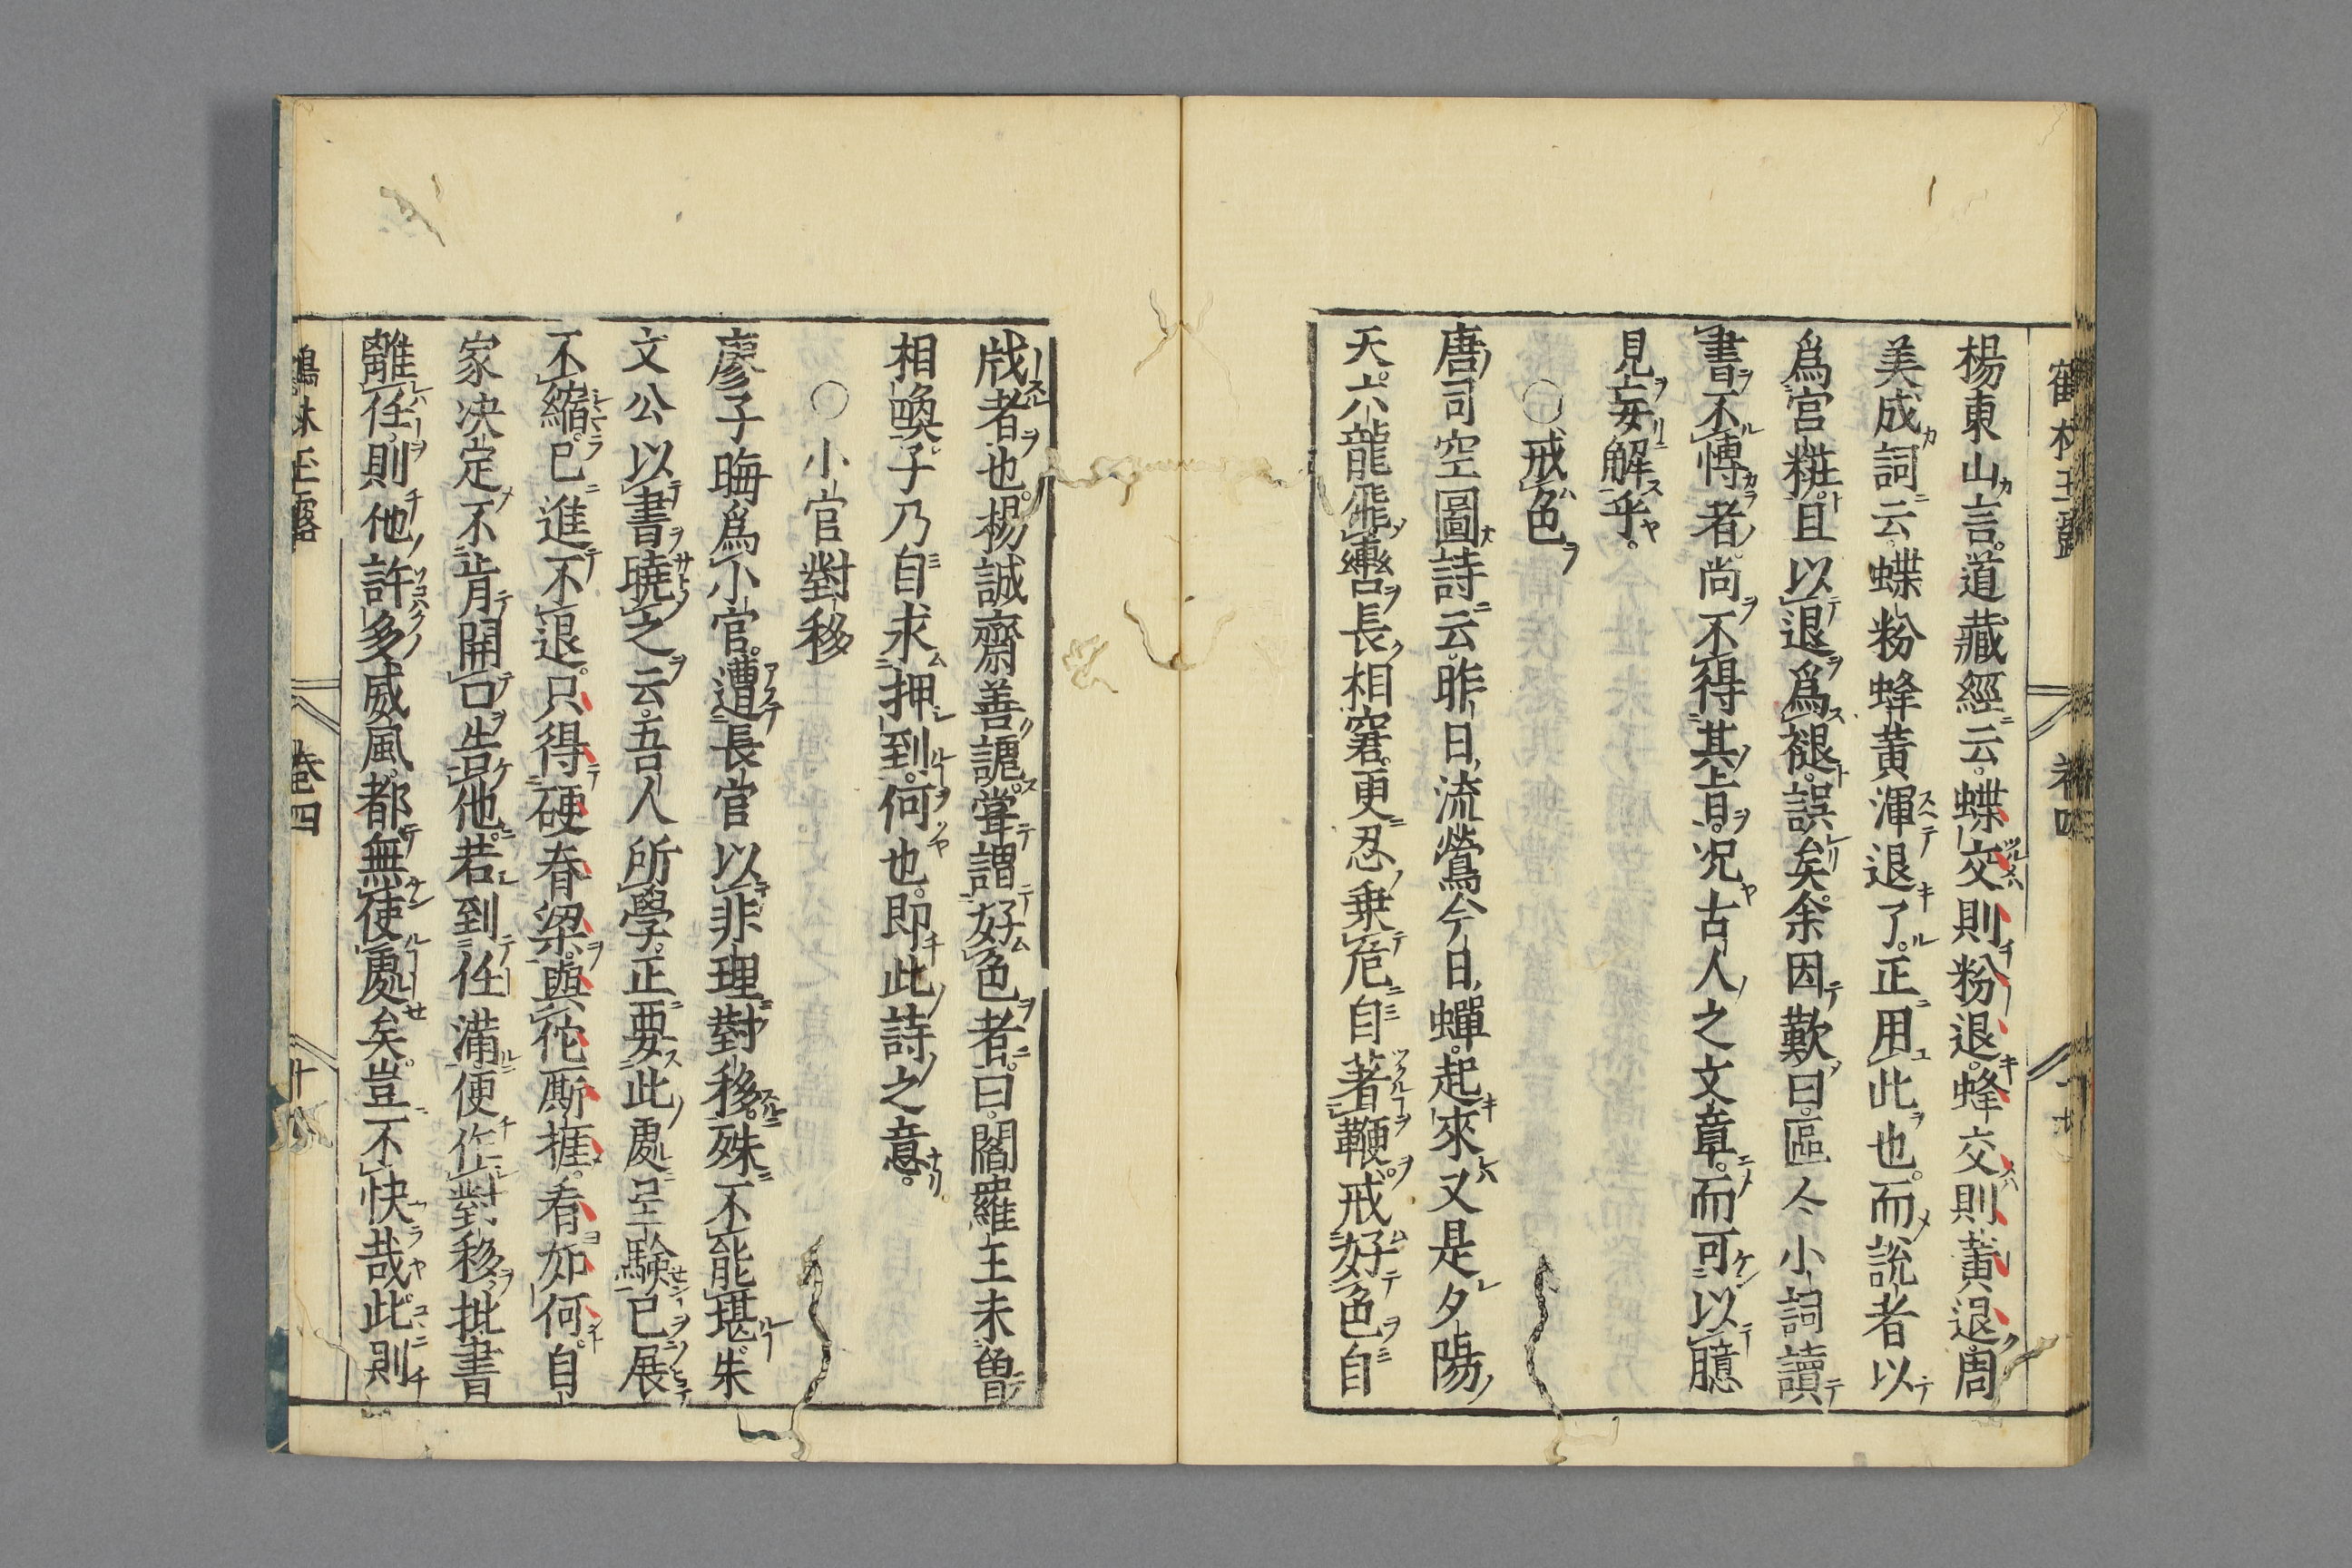 楊東山言。道藏經云。蝶交則粉退。蜂交則黃退。周
美成詞云。蝶粉蜂黃渾退了。正用此也。而說者以
爲宮粧。且以退爲褪。誤矣。余因歎曰。區々小詞讀
書不博者。尚不得其旨。況古人之文章。而可以臆
見妄解乎。
○戒色
唐司空圖詩云。昨日流鶯今日蟬。起來又是夕陽
天。六龍飛轡長相窘。更忍乘危自著鞭。戒好色自
戕者也。楊誠齋善謔。甞謂好色者曰。閻羅王未曽
相喚。子乃自求押到。何也。即此詩之意。
○小官對移
廖子晦爲小官。遭長官以非理對移。殊不能堪。朱
文公以書曉之云。吾人所學。正要此處呈驗。已展
不縮。已進不退。只得硬脊梁。與佗厮捱。看如何。自
家决定不肯開口告他。若到任滿。便作對移。批書
離任。則他許多威風。都無使處矣。豈不快哉。此則
巻四